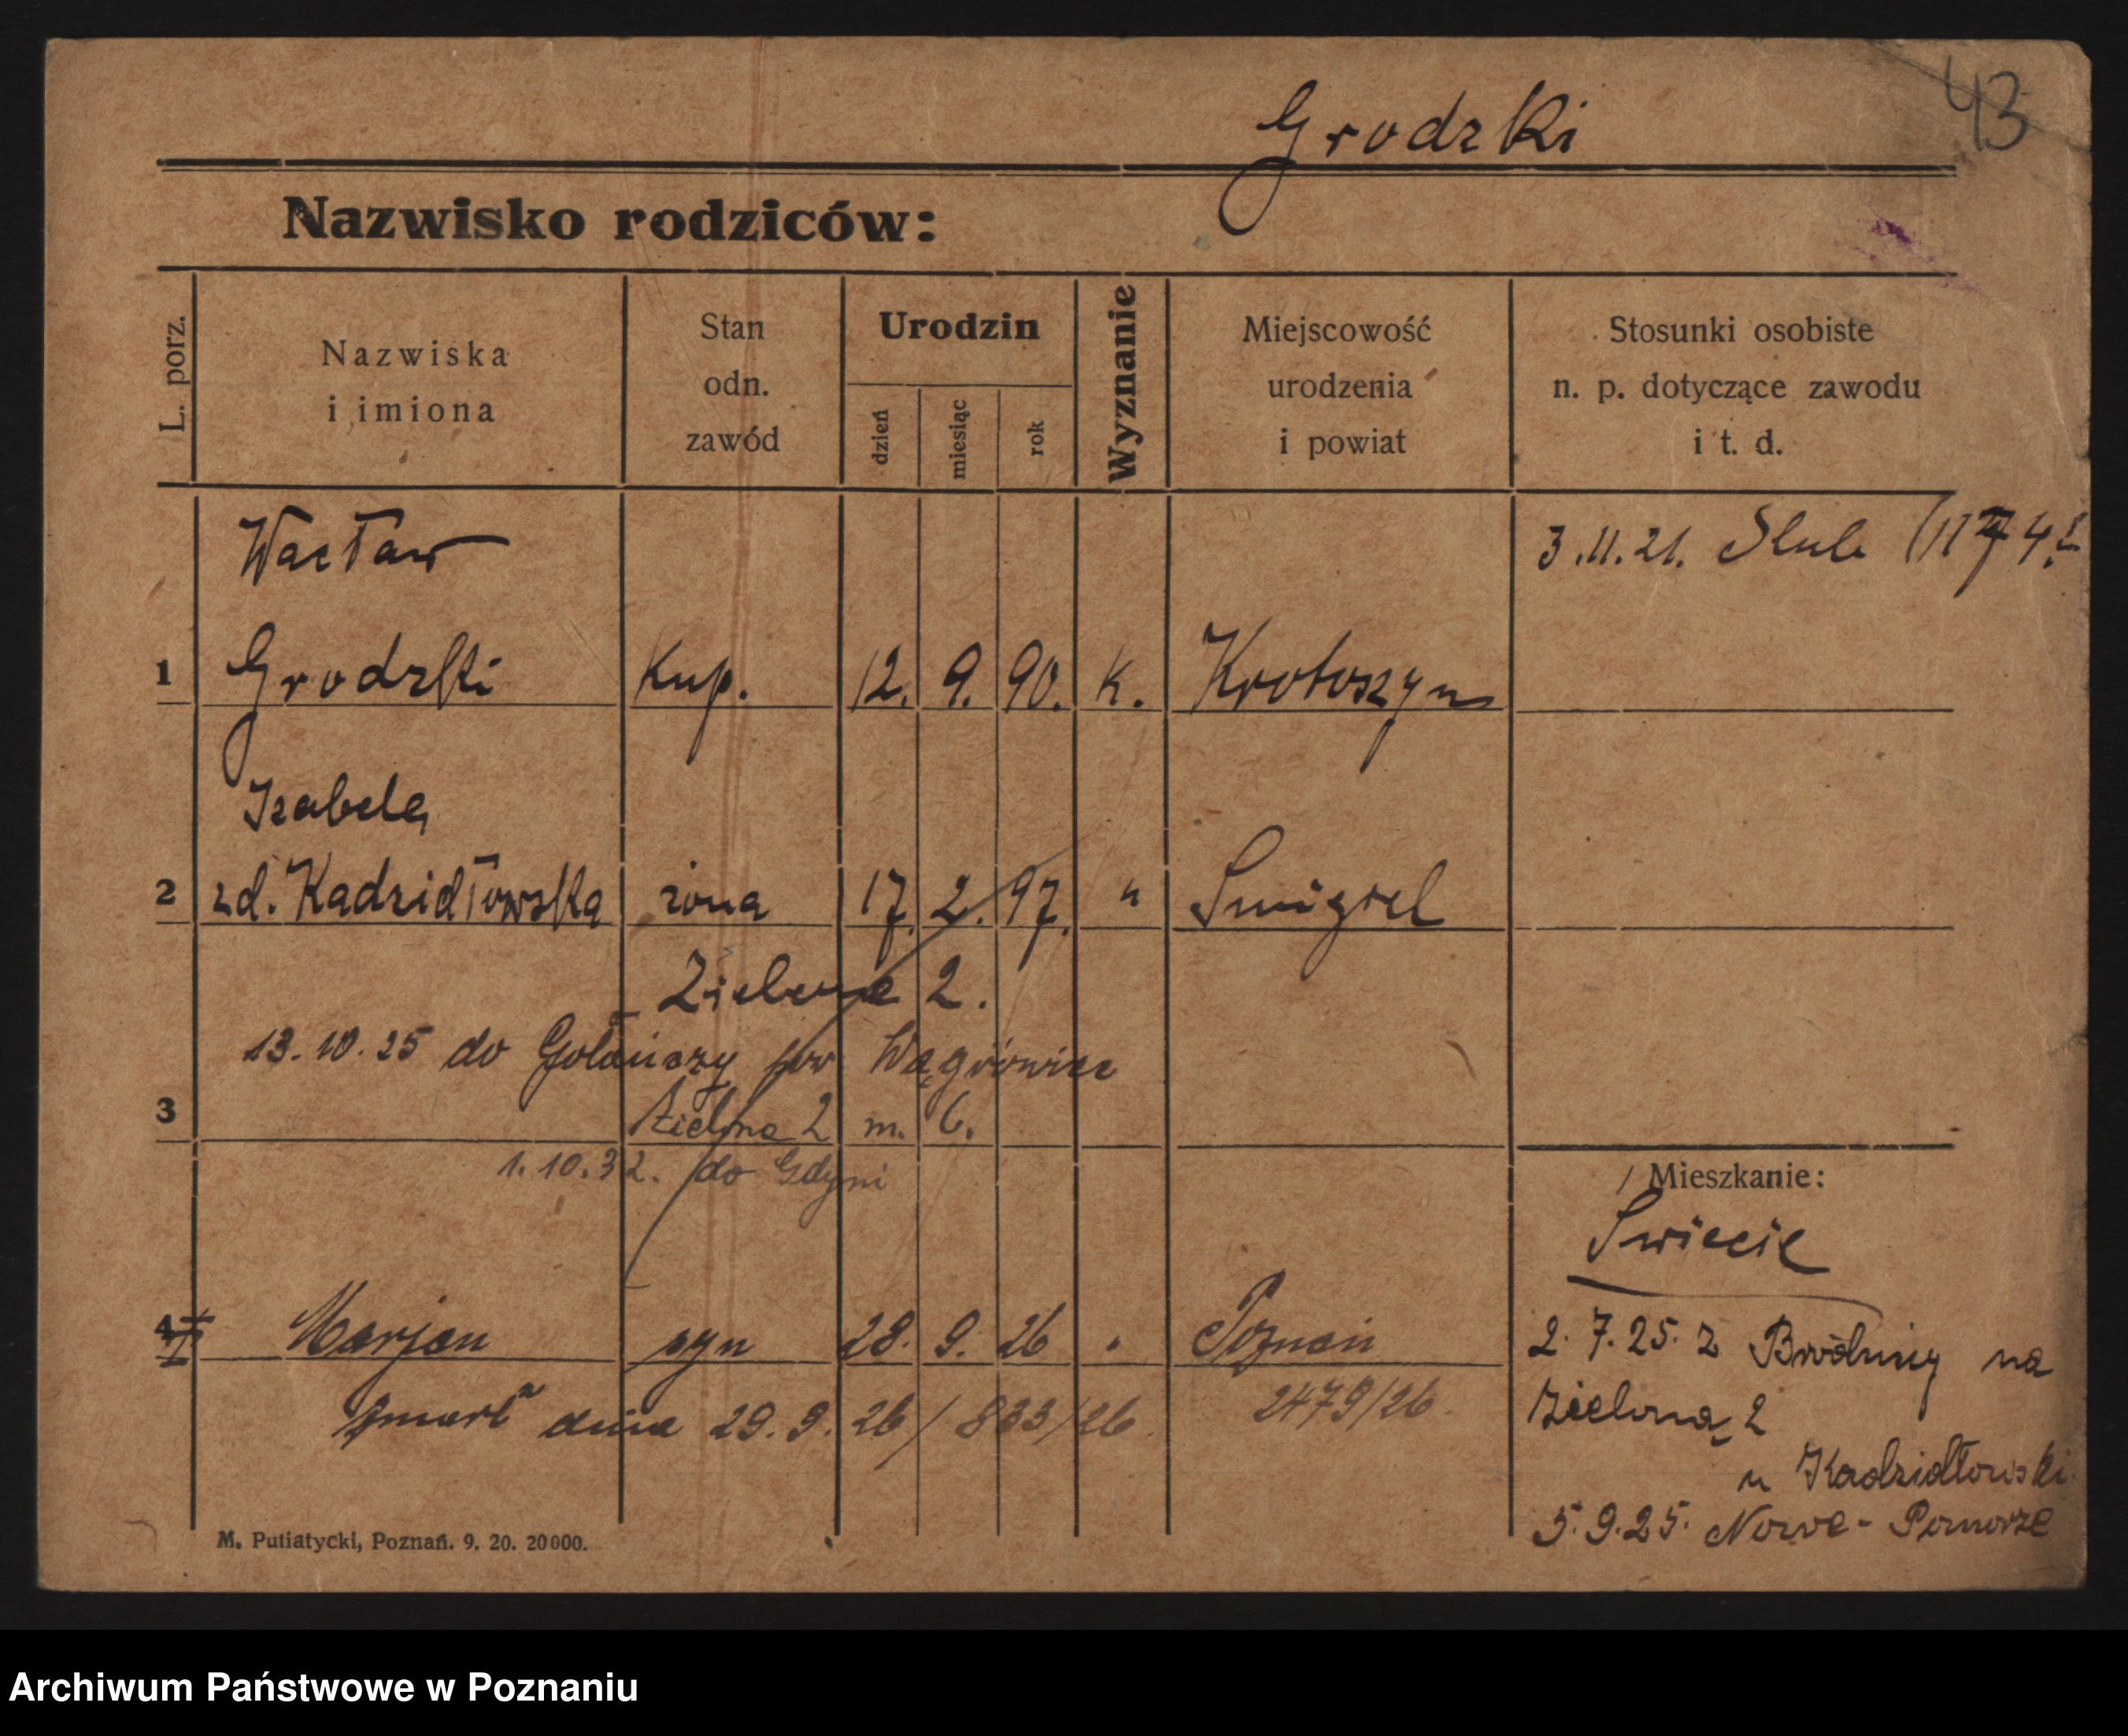 43
Grodzki
Nazwisko rodziców:
L. porz.
Nazwiska
i imiona
Stan
odn.
zawód
Urodzin
dzień
miesiąc
rok
Wyznanie
Miejscowość
urodzenia
i powiat
Stosunki osobiste
n. p. dotyczące zawodu
i t. d.
Wacław
3.11.21.
1 Grodzki Kup. 12. 9. 90. k. Krotoszyn
Izabela
2 zd. Kadzidłowska żona 17. 2. 97. " Smigiel
Zielona 2.
13.10.25 do Gołańczy pow Wągrówiec
3 Zielona 2 m. 6.
1.10.32. do Gdyni
Mieszkanie:
Swiecie
4 Marjan syn 28. 9. 26 " Poznań
zmarł dnia 29.9.26 / 833/26 2479/26.
2.7.25. z na
Zieloną 2
u Kadzidłowski
5.9.25. Nowe - Pomorze
M. Putiatycki, Poznań. 9. 20. 20000.
Archiwum Państwowe w Poznaniu